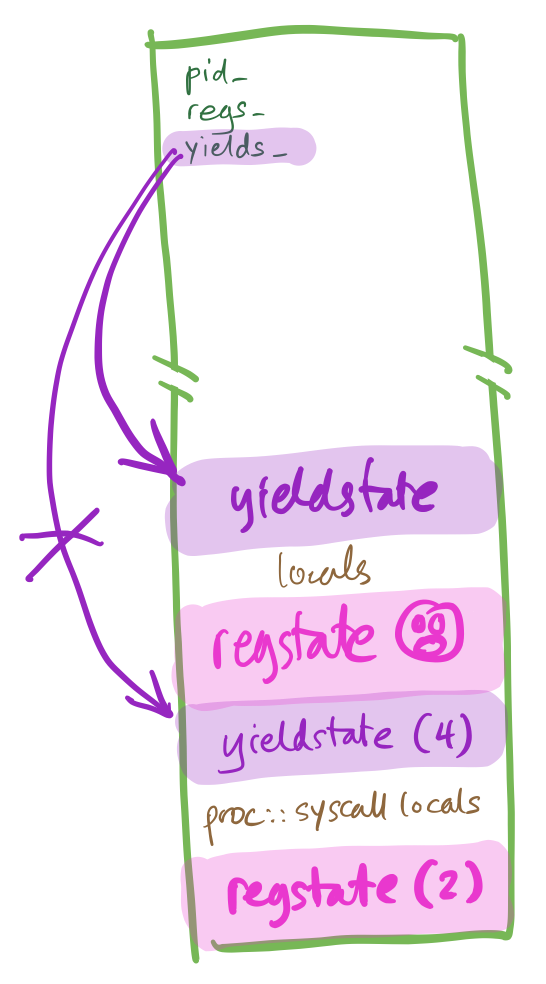 pid_
regs_
yields_
yieldstate
locals
regstate
yieldstate (4)
proc::syscall locals
regstate (2)